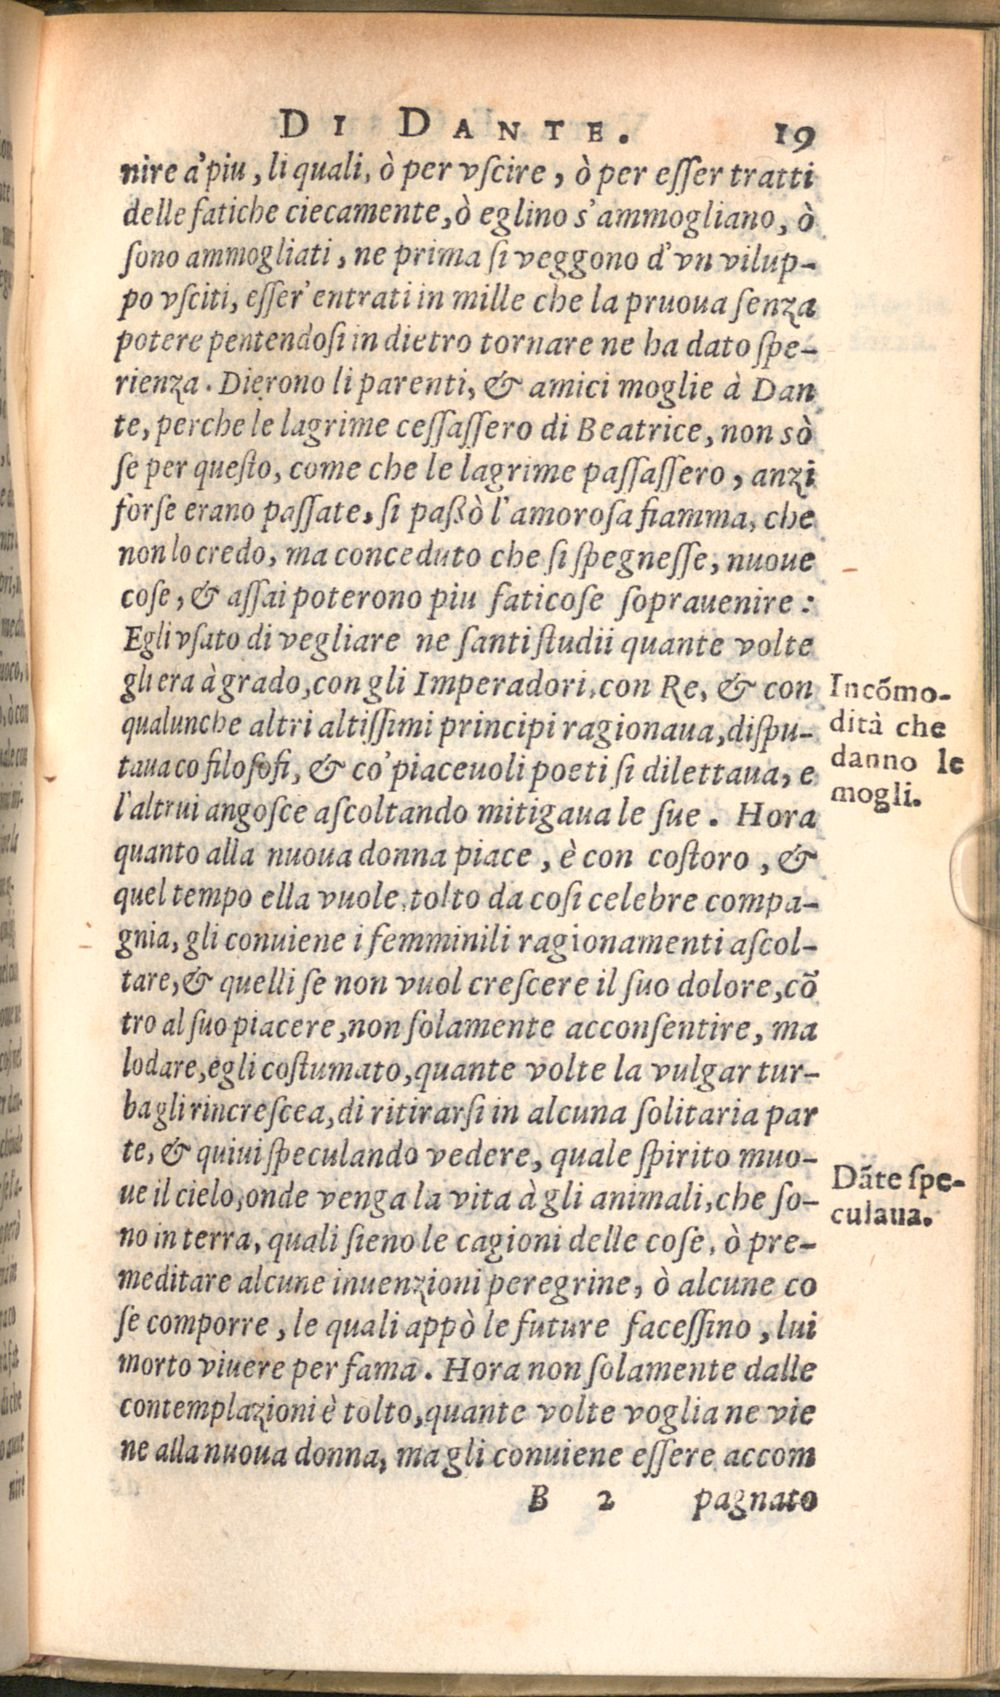 DI DANTE. 19
nire a' piu, li quali, ò per vſcire, ò per eſſer tratti
delle fatiche ciecamente, ò eglino s'ammogliano, ò
ſono ammogliati, ne prima ſi veggono d'vn vilup-
po vſciti, eſſer' entrati in mille che la pruoua ſenza
potere pentendoſi in dietro tornare ne ha dato ſpe-
rienza. Dierono li parenti, & amici moglie à Dan
te, perche le lagrime ceſſaſſero di Beatrice, non sò
ſe per queſto, come che le lagrime paſſaſſero, anzi
forſe erano paſſate, ſi paßò l'amoroſa fiamma, che
non lo credo, ma conceduto che ſi ſpegneſſe, nuoue
coſe, & aſſai poterono piu faticoſe ſoprauenire:
Egli vſato di vegliare ne ſanti ſtudii quante volte
gli era à grado, con gli Imperadori, con Re, & con
qualunche altri altiſſimi principi ragionaua, diſpu-
taua co filoſofi, & co' piaceuoli poeti ſi dilettaua, e
l'altrui angoſce aſcoltando mitigaua le ſue. Hora
quanto alla nuoua donna piace, è con coſtoro, &
quel tempo ella vuole, tolto da coſi celebre compa-
gnia, gli conuiene i femminili ragionamenti aſcol-
tare, & quelli ſe non vuol creſcere il ſuo dolore, cō
tro al ſuo piacere, non ſolamente acconſentire, ma
lodare, egli coſtumato, quante volte la vulgar tur-
ba gli rincreſcea, di ritirarſi in alcuna ſolitaria par
te, & quiui ſpeculando vedere, quale ſpirito muo-
ue il cielo, onde venga la vita à gli animali, che ſo-
no in terra, quali ſieno le cagioni delle coſe, ò pre-
meditare alcune inuenzioni peregrine, ò alcune co
ſe comporre, le quali appò le future faceſſino, lui
morto viuere per fama. Hora non ſolamente dalle
contemplazioni è tolto, quante volte voglia ne vie
ne alla nuoua donna, ma gli conuiene eſſere accom
B 2 pagnato
Incōmo-
dità che
danno le
mogli.
Dāte ſpe-
culaua.